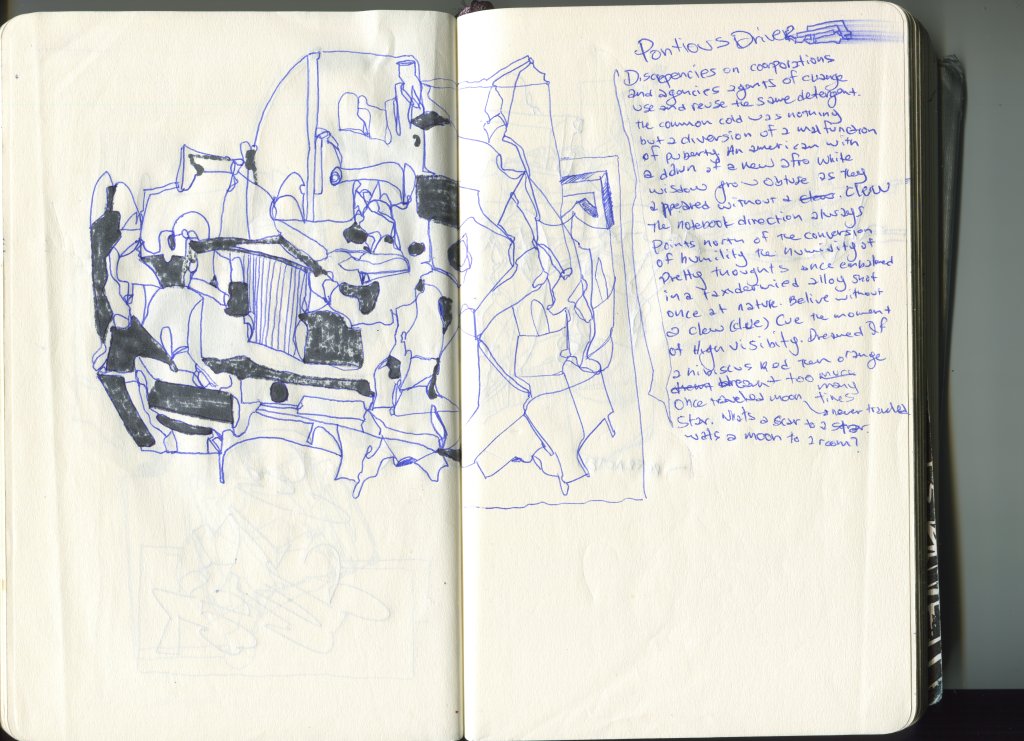 Pontious Driver
Discrepencies on coorporations
and agencies agents of change
use and reuse the same detergant.
the common cold was nothing
but a diversion of a malfunction
of puberty. An american with
a dawn of a new afro white
wisdom grow obtuse as they
appeared without a clew. clew
the notebook direction always
points north of the conversion
of humility the humidity of
Pretty thoughts once embalmed
in a taxidermied alloy shot
once at nature. Belive without
a clew (clue) Cue the moment
of high visibity. Dreamed of
a hibiscus red than orange
dreamt too much
Once traveled moon, many times
Star. Whats a scar to a star never traveled
wats a moon to a room?